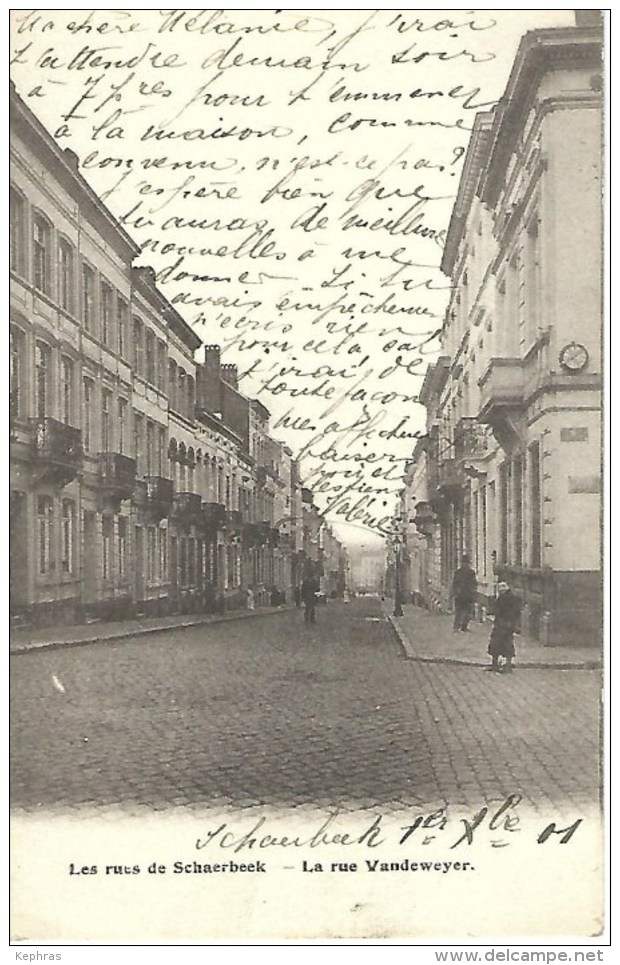 Ma chère Mélanie, j'irai
t'attendre demain soir
à 7 hres pour t'emmener
à la maison, comme
convenu, n'est-ce pas?
J'espère bien que
tu auras de meilleures
nouvelles à me
donner. Si tu
avais empêchement
n'écris rien
pour cela
j'irai de
toute façon
Mes affectueux
baisers
Valérie
Schaerbeek 1er Xbre 01
Les rues de Schaerbeek – La rue Vandeweyer.
Kephras
www.delcampe.net